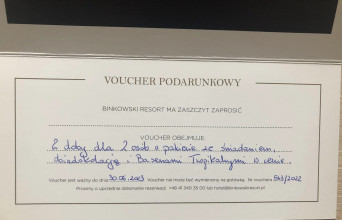 VOUCHER PODARUNKOWY
BINKOWSKI RESORT MA ZASZCZYT ZAPROSIĆ
VOUCHER OBEJMUJE:
2 doby dla 2 osób w pakiecie ze śniadaniem,
obiadokolacją i Basenami Tropikalnymi w cenie.
Voucher jest ważny do dnia 30.06.2023 Voucher nie może być wymieniony na gotówkę. Nr vouchera 543/2022
Prosimy o uprzednie dokonanie rezerwacji: +48 41 340 35 00 lub hotel@binkowskiresort.pl